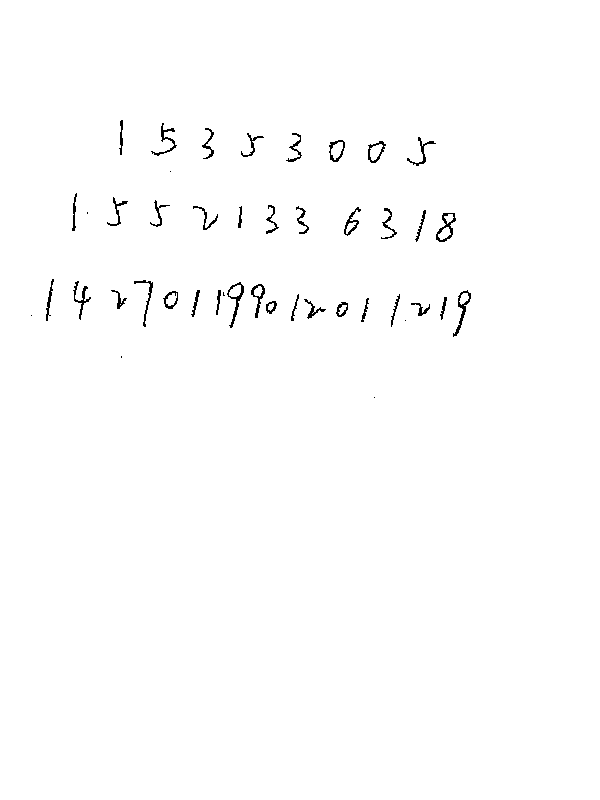 15353005
15521336318
142701199012011219